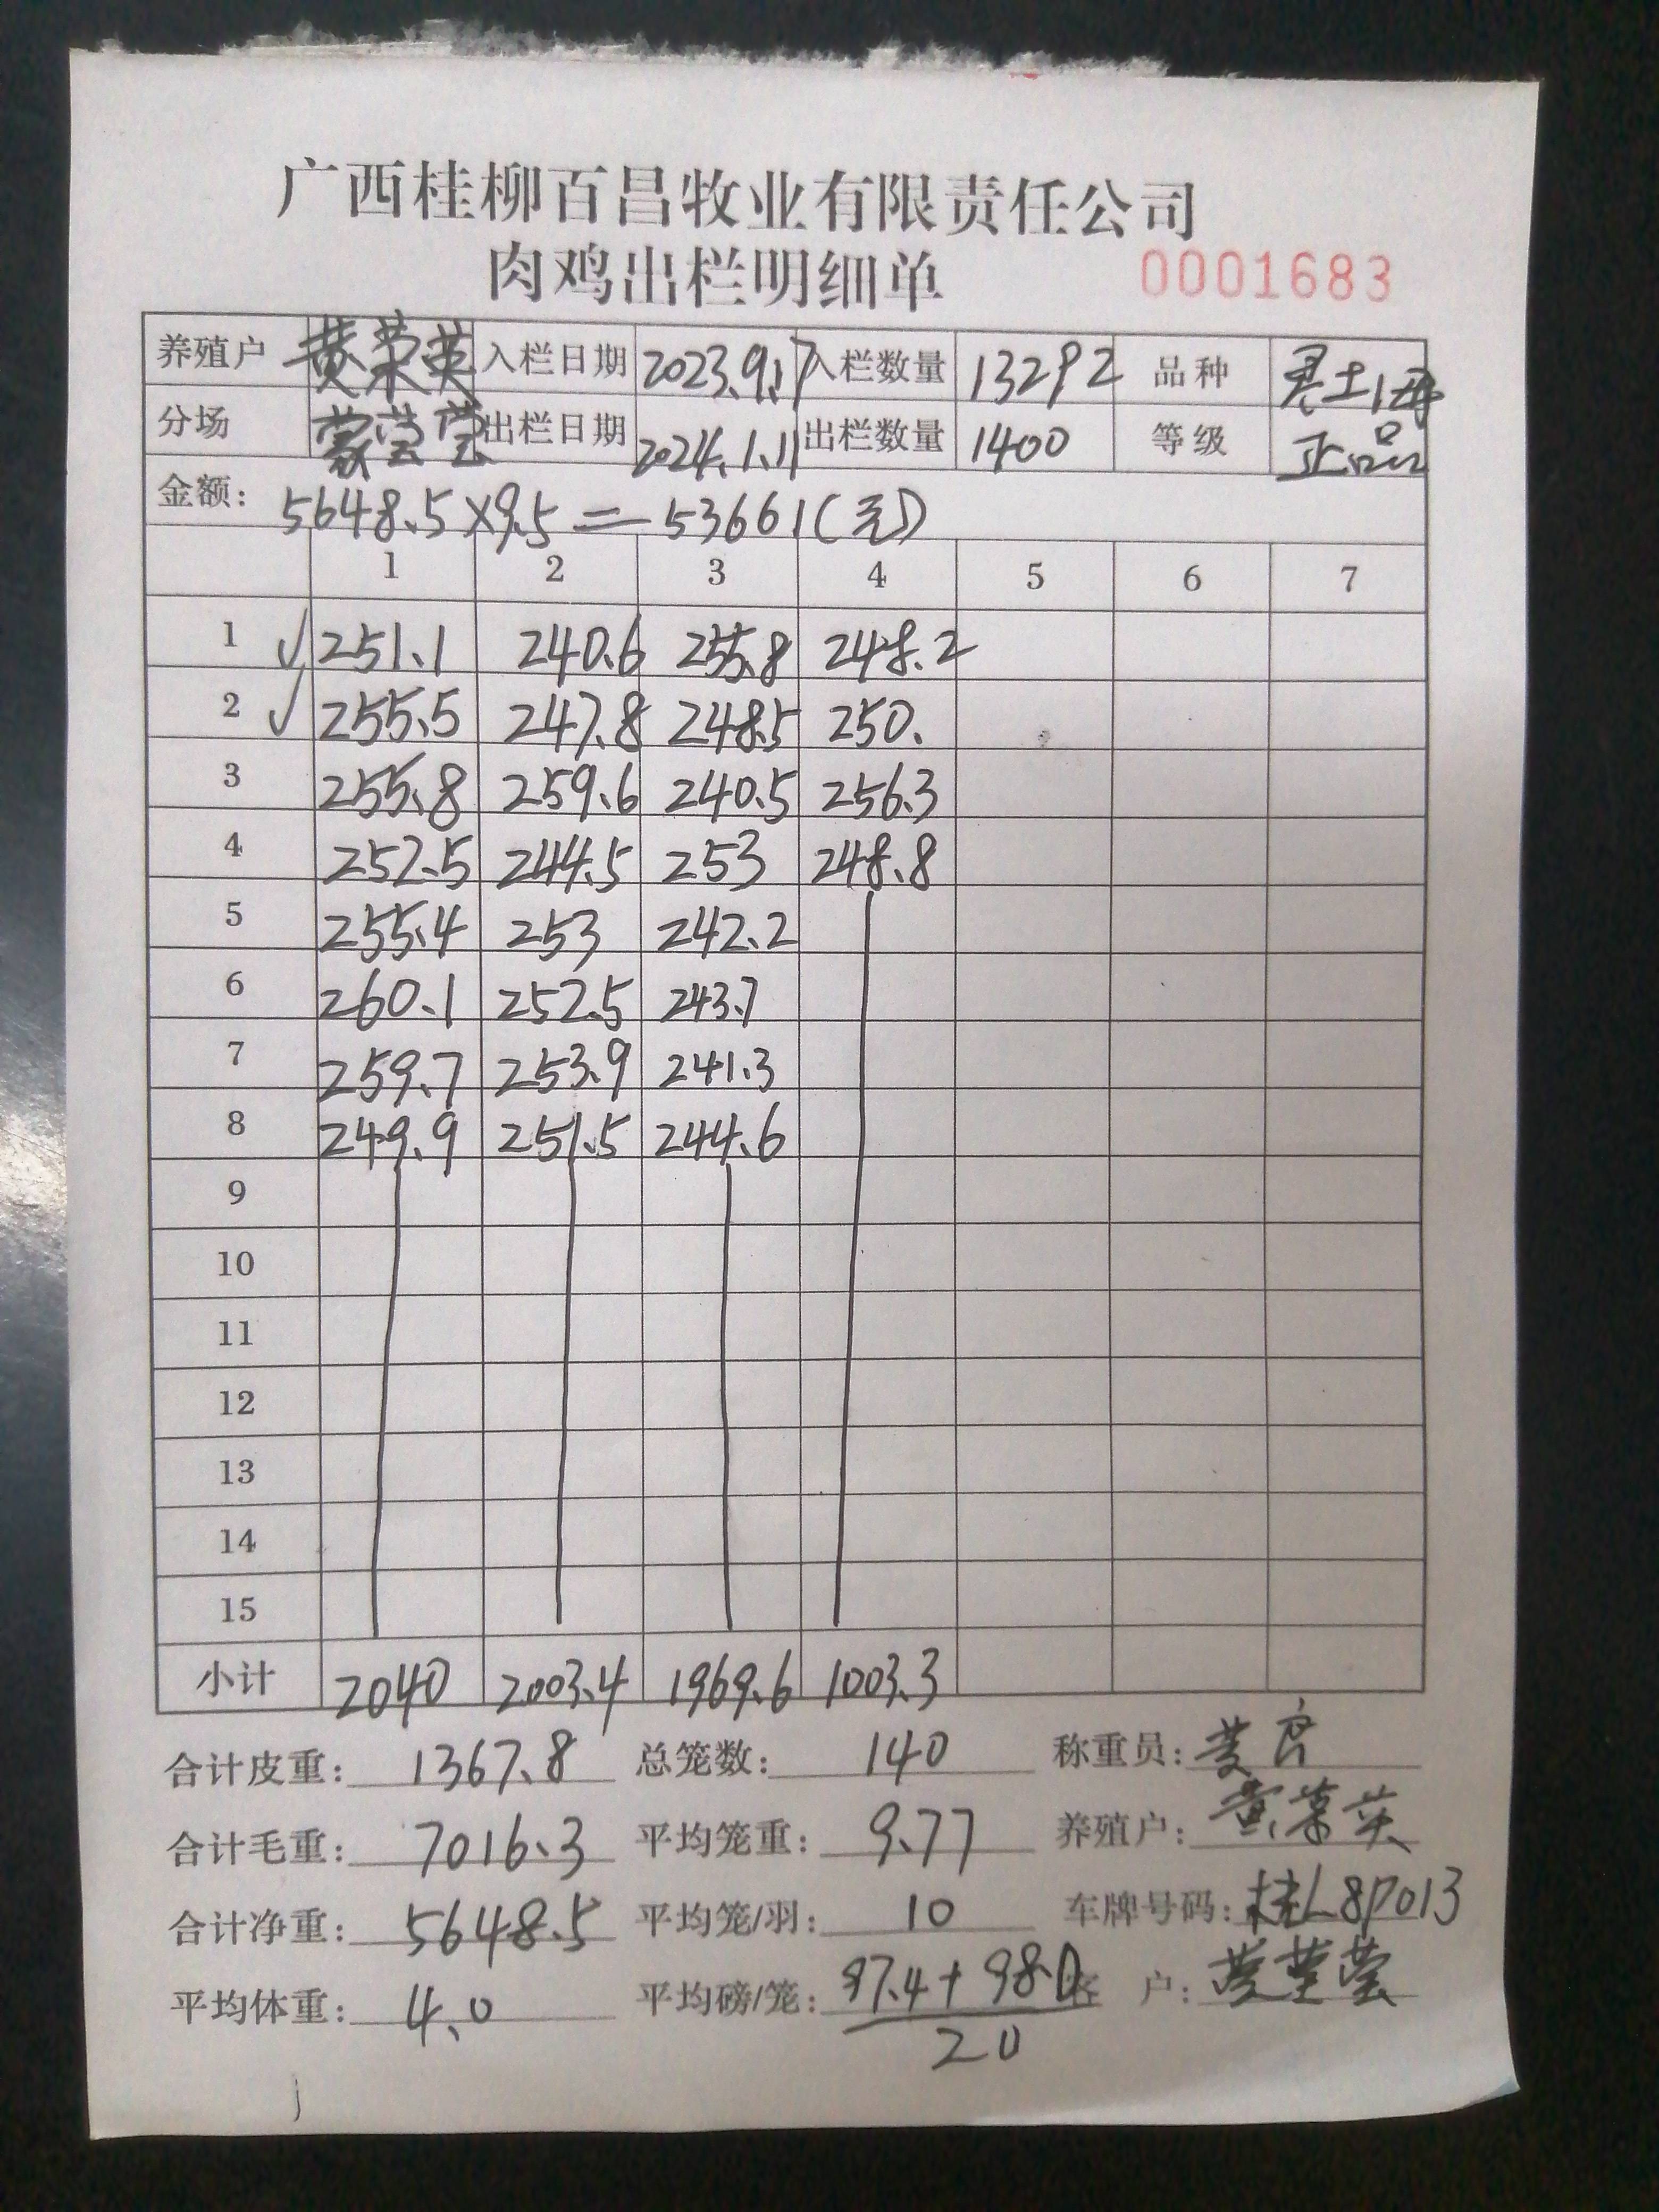 广西桂柳百昌牧业有限责任公司
肉鸡出栏明细单 0001683
养殖户 黄荣英 入栏日期 2023.9.17 入栏数量 13292 品种
分场 蒙莹莹 出栏日期 2024.1.11 出栏数量 1400 等级 正品
金额: 5648.5×9.5=53661(元)
1 2 3 4 5 6 7
1 √ 251.1 240.6 255.8 248.2
2 √ 255.5 247.8 248.5 250.
3 255.8 259.6 240.5 256.3
4 252.5 244.5 253 248.8
5 255.4 253 242.2
6 260.1 252.5 243.7
7 259.7 253.9 241.3
8 249.9 251.5 244.6
9
10
11
12
13
14
15
小计 2040 2003.4 1969.6 1003.3
合计皮重: 1367.8 总笼数: 140 称重员:
合计毛重: 7016.3 平均笼重: 9.77 养殖户: 黄荣英
合计净重: 5648.5 平均笼/羽: 10 车牌号码: 桂L8P013
平均体重: 4.0 平均磅/笼: 97.4+98.0 客户:
20